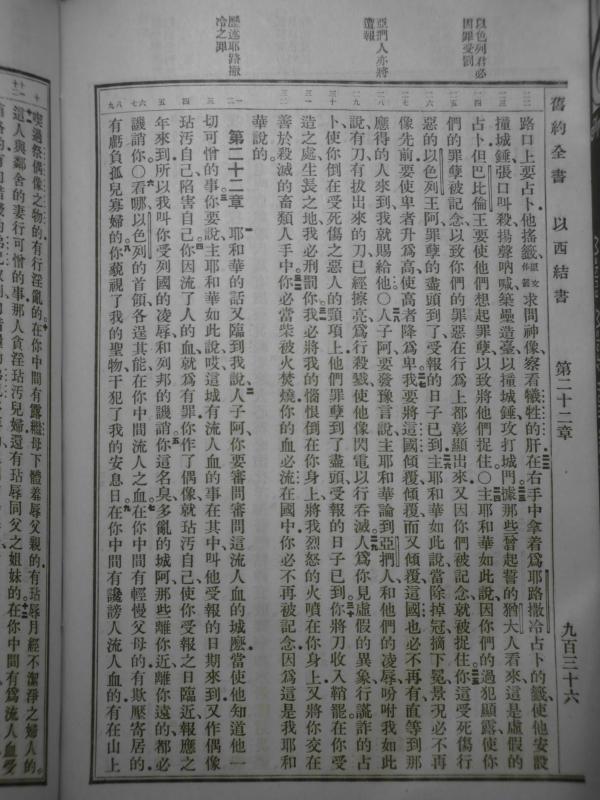 舊約全書　以西結書　第二十二章　九百三十六
以色列君必因罪受罰
亞捫人亦將遭報
歷述耶路撒冷之罪
路口上要占卜他搖籤原文作箭求問神像察看犧牲的肝在右手中拿着爲耶路撒冷占卜的籤使他安設
撞城錘張口叫殺揚聲吶喊築壘造臺以撞城錘攻打城門據那些曾起誓的猶大人看來這是虛假的
占卜但巴比倫王要使他們想起罪孽以致將他們捉住〇主耶和華如此說因你們的過犯顯露使你
們的罪孽被記念以致你們的罪惡在行爲上都彰顯出來又因你們被記念就被捉住你這受死傷行
惡的以色列王阿罪孽的盡頭到了受報的日子已到主耶和華如此說當除掉冠摘下冕景況必不再
像先前要使卑者升爲高使高者降爲卑我要將這國傾覆傾覆而又傾覆這國也必不再有直等到那
應得的人來到我就賜給他〇人子阿要發豫言說主耶和華論到亞捫人和他們的凌辱吩咐我如此
說有刀有拔出來的刀已經擦亮爲行殺戮使他像閃電以行吞滅人爲你見虛假的異象行謊詐的占
卜使你倒在受死傷之惡人的頸項上他們罪孽到了盡頭受報的日子已到你將刀收入鞘罷在你受
造之處生長之地我必刑罰你我必將我的惱恨倒在你身上將我烈怒的火噴在你身上又將你交在
善於殺滅的畜類人手中你必當柴被火焚燒你的血必流在國中你必不再被記念因爲這是我耶和
華說的
第二十二章　耶和華的話又臨到我說人子阿你要審問審問這流人血的城麼當使他知道他一
切可憎的事你要說主耶和華如此說哎這城有流人血的事在其中叫他受報的日期來到又作偶像
玷污自己陷害自己你因流了人的血就爲有罪你作了偶像就玷污自己使你受報之日臨近報應之
年來到所以我叫你受列國的凌辱和列邦的譏誚你這名臭多亂的城阿那些離你近離你遠的都必
譏誚你〇看哪以色列的首領各逞其能在你中間流人之血在你中間有輕慢父母的有欺壓寄居的
有虧負孤兒寡婦的你藐視了我的聖物干犯了我的安息日在你中間有讒謗人流人血的有在山上
喫過祭偶像之物的有行淫亂的在你中間有露繼母下體羞辱父親的有玷辱月經不潔淨之婦人的
這人與鄰舍的妻行可憎的事那人貪淫玷污兒婦還有玷辱同父之姐妹的在你中間有爲流人血受